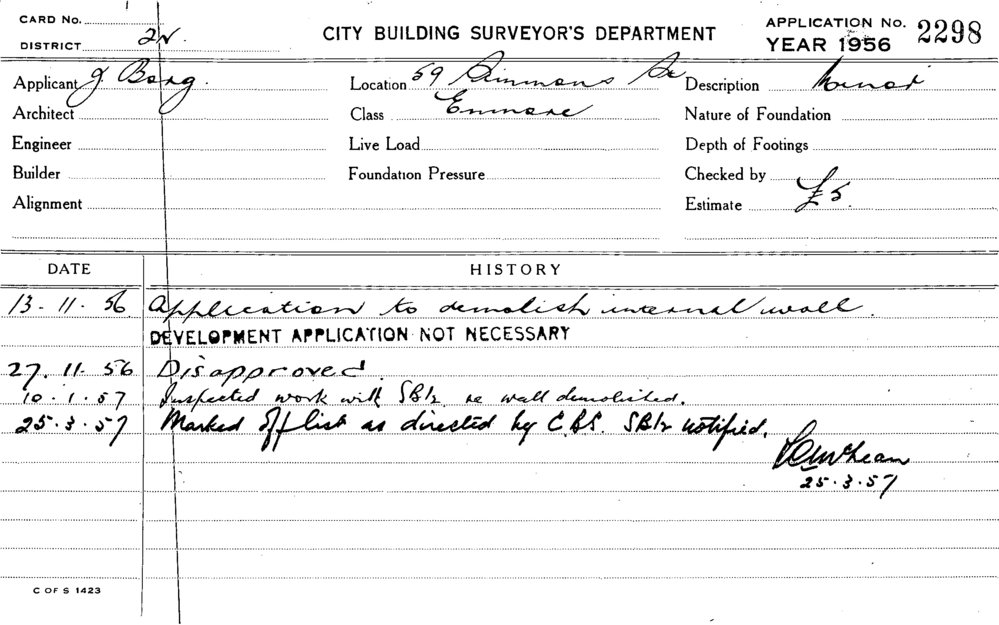 CARD No.
DISTRICT 2N.
CITY BUILDING SURVEYOR'S DEPARTMENT
APPLICATION No. 2298
YEAR 1956
Applicant J Borg.
Location 59 Simmons St
Description Minor
Architect
Class Enmore
Nature of Foundation
Engineer
Live Load
Depth of Footings
Builder
Foundation Pressure
Checked by
Alignment
Estimate £5.
DATE HISTORY
13.11.56 Application to demolish internal wall.
DEVELOPMENT APPLICATION NOT NECESSARY
27.11.56 Disapproved.
10.1.57 Inspected work with SBI2 re wall demolished.
25.3.57 Marked off list as directed by C.B.S. SBI2 notified.
McLean
25.3.57
C OF S 1423